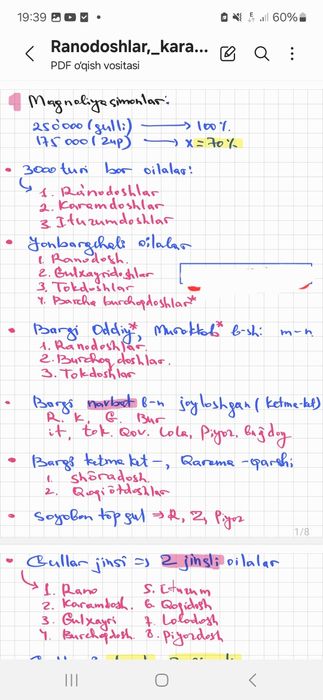 19:39
60%
Ranodoshlar,_kara...
PDF o'qish vositasi
1 Magnoliyasimonlar:
250'000 (gulli) → 100%
175'000 (2up) → x = 70%
• 3000 turi bor oilalar:
1. Ranodoshlar
2. Karamdoshlar
3. Ituzumdoshlar
• Yonbargchali oilalar
1. Ranodosh.
2. Gulxayridoshlar
3. Tokdoshlar
4. Barcha burchoqdoshlar*
• Bargi Oddiy*, Murakkab* b-sh: m-n
1. Ranodoshlar
2. Burchoqdoshlar.
3. Tokdoshlar
• Bargi navbat b-n joylashgan (ketma-ket)
R. K. G. Bur
it, tok. Qov. Lola, Piyoz, bug'doy
• Bargi ketma ket -, Qarama - qarshi
1. shoradosh
2. Qoqiotdoshlar
• Soyabon to'pgul ⇒ R, Z, Piyoz
1/8
• Gullar jinsi ⇒ 2 jinsli oilalar
1. Rano 5. Ituzum
2. Karamdosh. 6. Qoqidosh
3. Gulxayri 7. Loladosh
4. Burchoqdosh 8. Piyozdosh